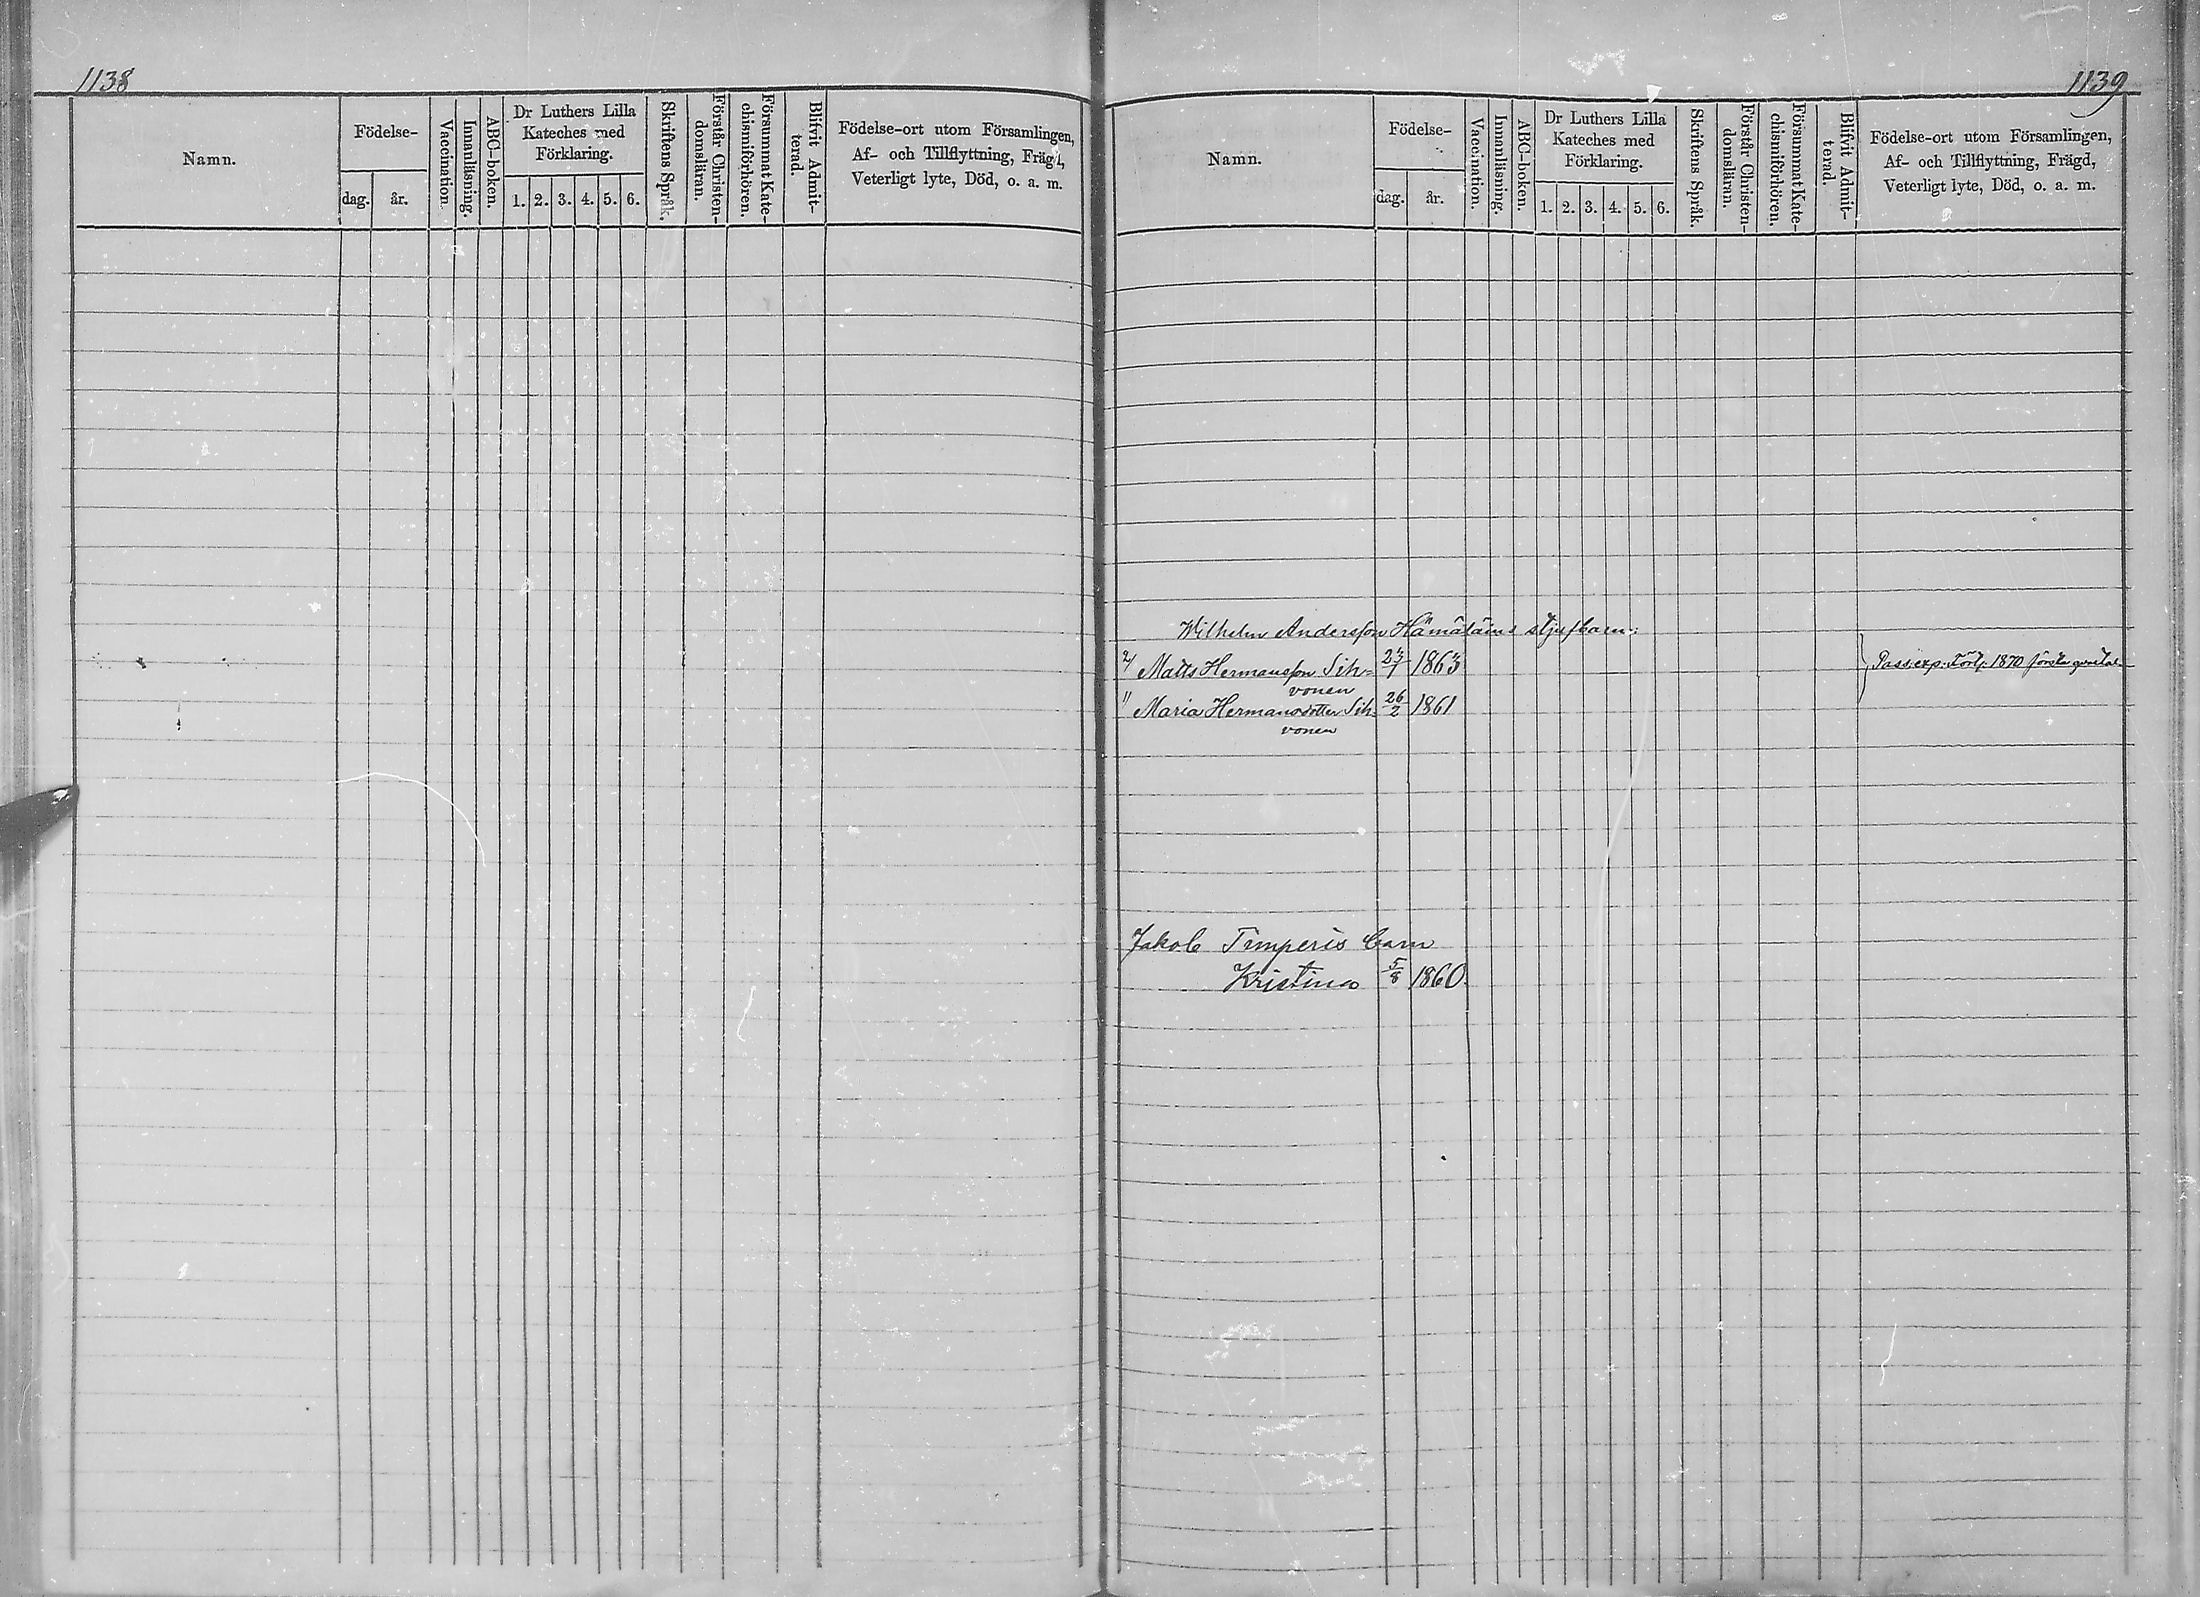 1138
Namn.
Födelse-
dag.
år.
Vaccination.
Innanläsning.
ABC-boken.
Dr Luthers Lilla
Kateches med
Förklaring.
1. 2. 3. 4. 5. 6.
Skriftens Språk.
Förstår Christen-
domsläran.
Försummat Kate-
chismiförhören.
Blifvit Admit-
terad.
Födelse-ort utom Församlingen,
Af- och Tillflyttning, Frägd,
Veterligt lyte, Död, o. a. m.
1139
Namn.
Födelse-
dag.
år.
Vaccination.
Innanläsning.
ABC-boken.
Dr Luthers Lilla
Kateches med
Förklaring.
1. 2. 3. 4. 5. 6.
Skriftens Språk.
Förstår Christen-
domsläran.
Försummat Kate-
chismiförhören.
Blifvit Admit-
terad.
Födelse-ort utom Församlingen,
Af- och Tillflyttning, Frägd,
Veterligt lyte, Död, o. a. m.
Wilhelm Andersson Hämäläins stjufbarn:
2/ Matts Hermansson Sih- 23/1 1863 Pass exp. 1870 första
vonen
Maria Hermansdotter Sih- 26/2 1861
vonen
Jakob Timperis barn
Kristina 5/8 1860.